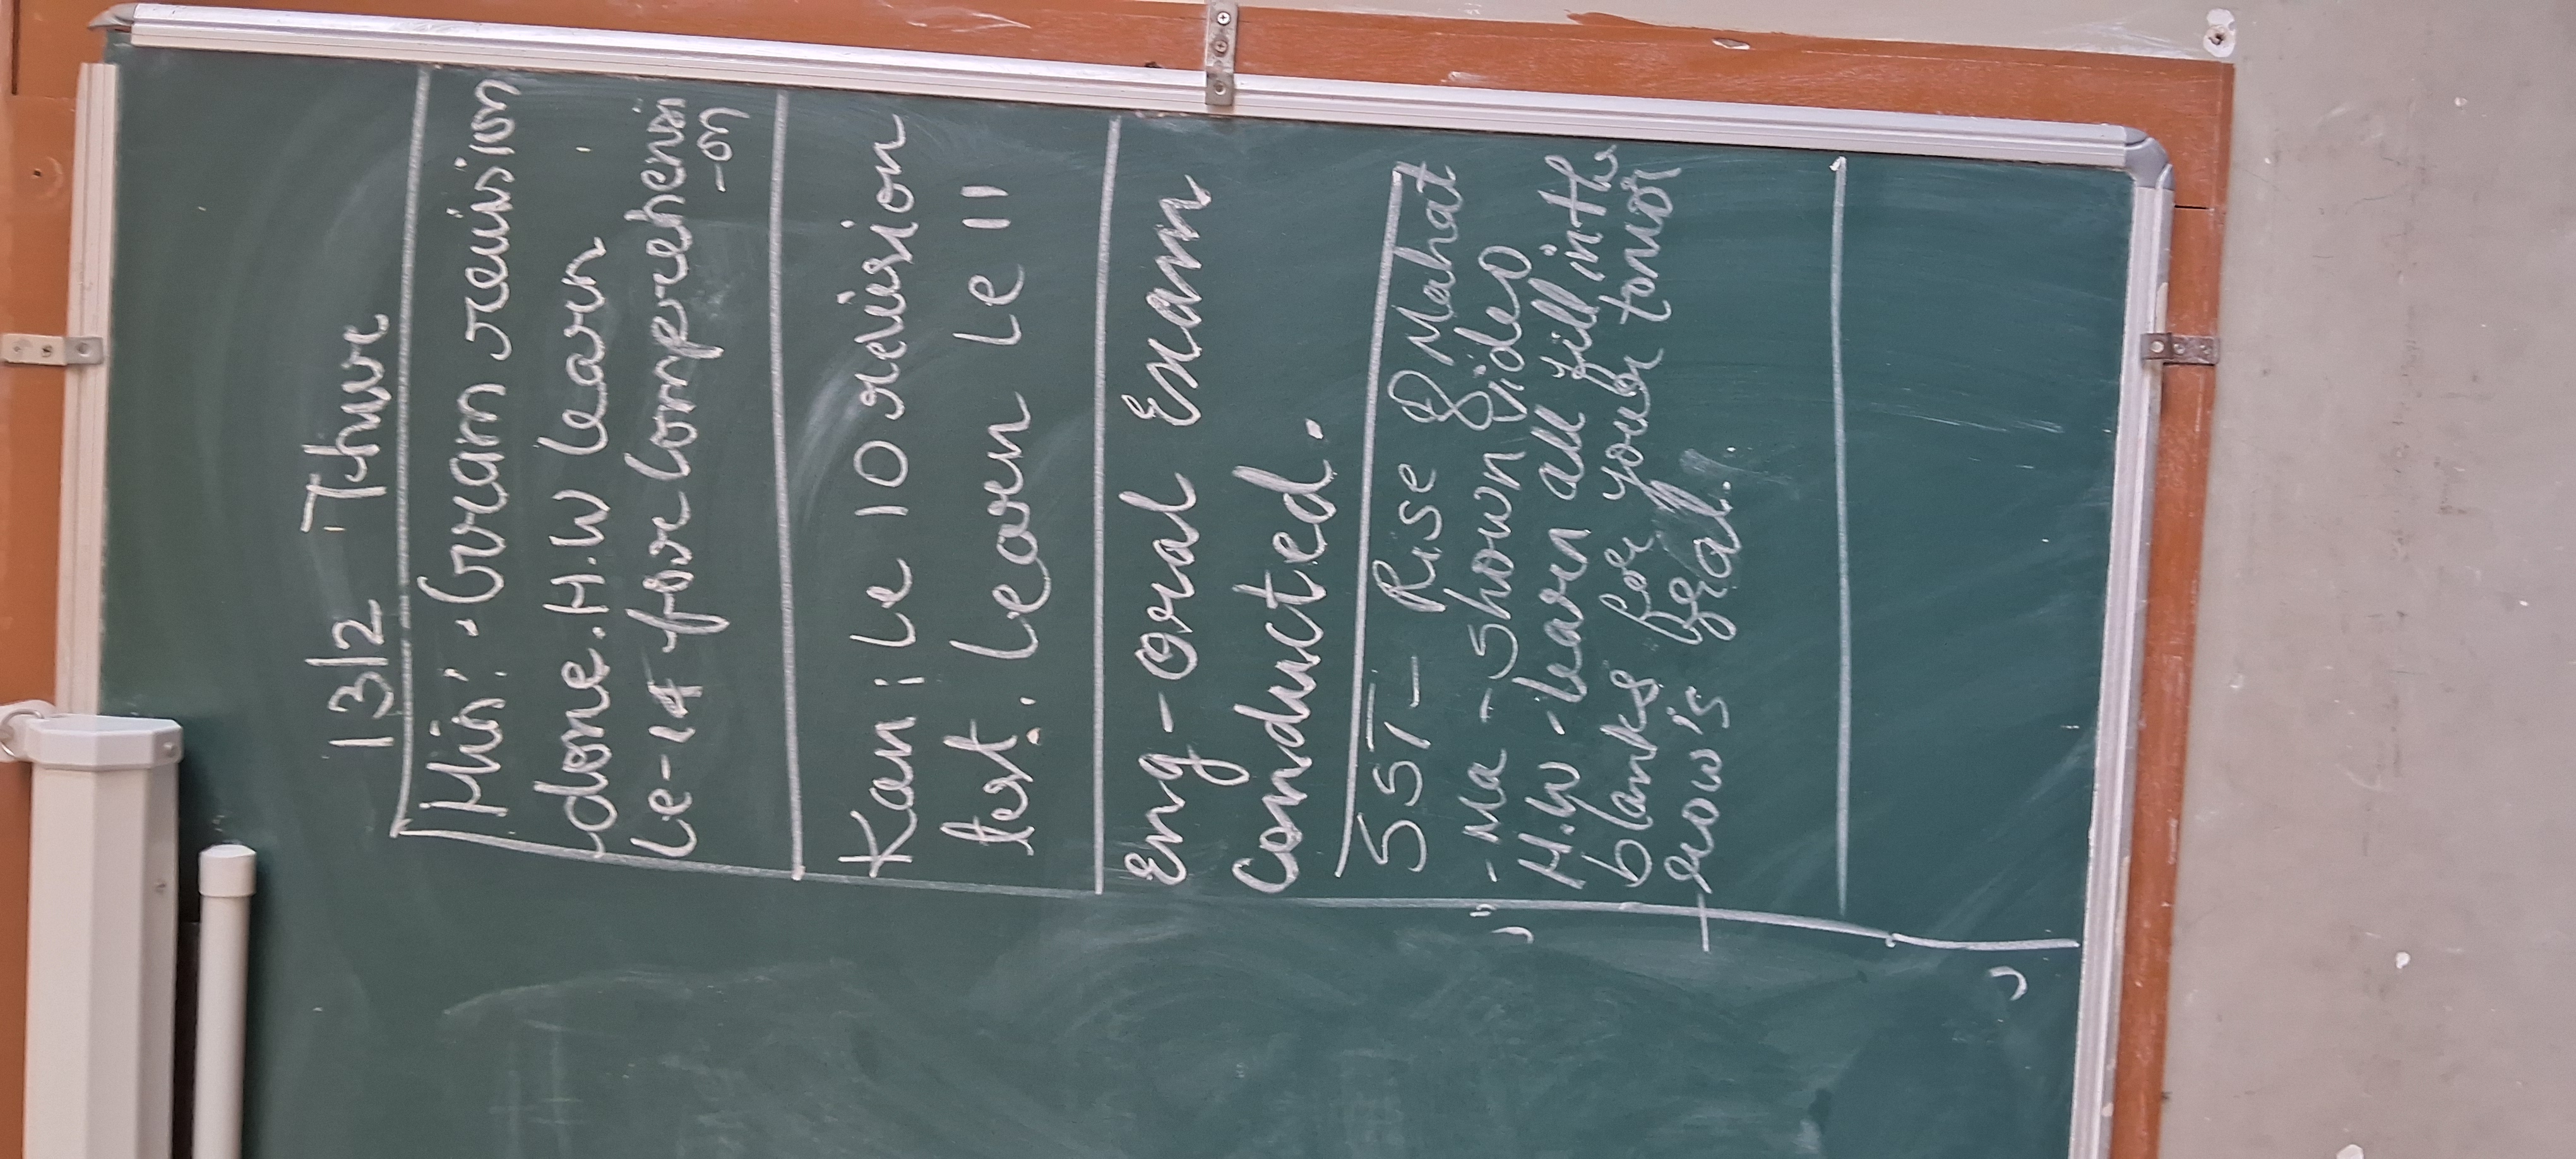 13/2 Thur
Hin: Gram revision
done. H.W learn
Le-14 for Comprehensi
-on
Kan: Le 10 revision
test. Learn Le 11
Eng-oral Exam
Conducted.
SST- Rise of Mahat
-Ma - Shown Video
H.W - learn all fill in the
blanks for your tomor
-row's